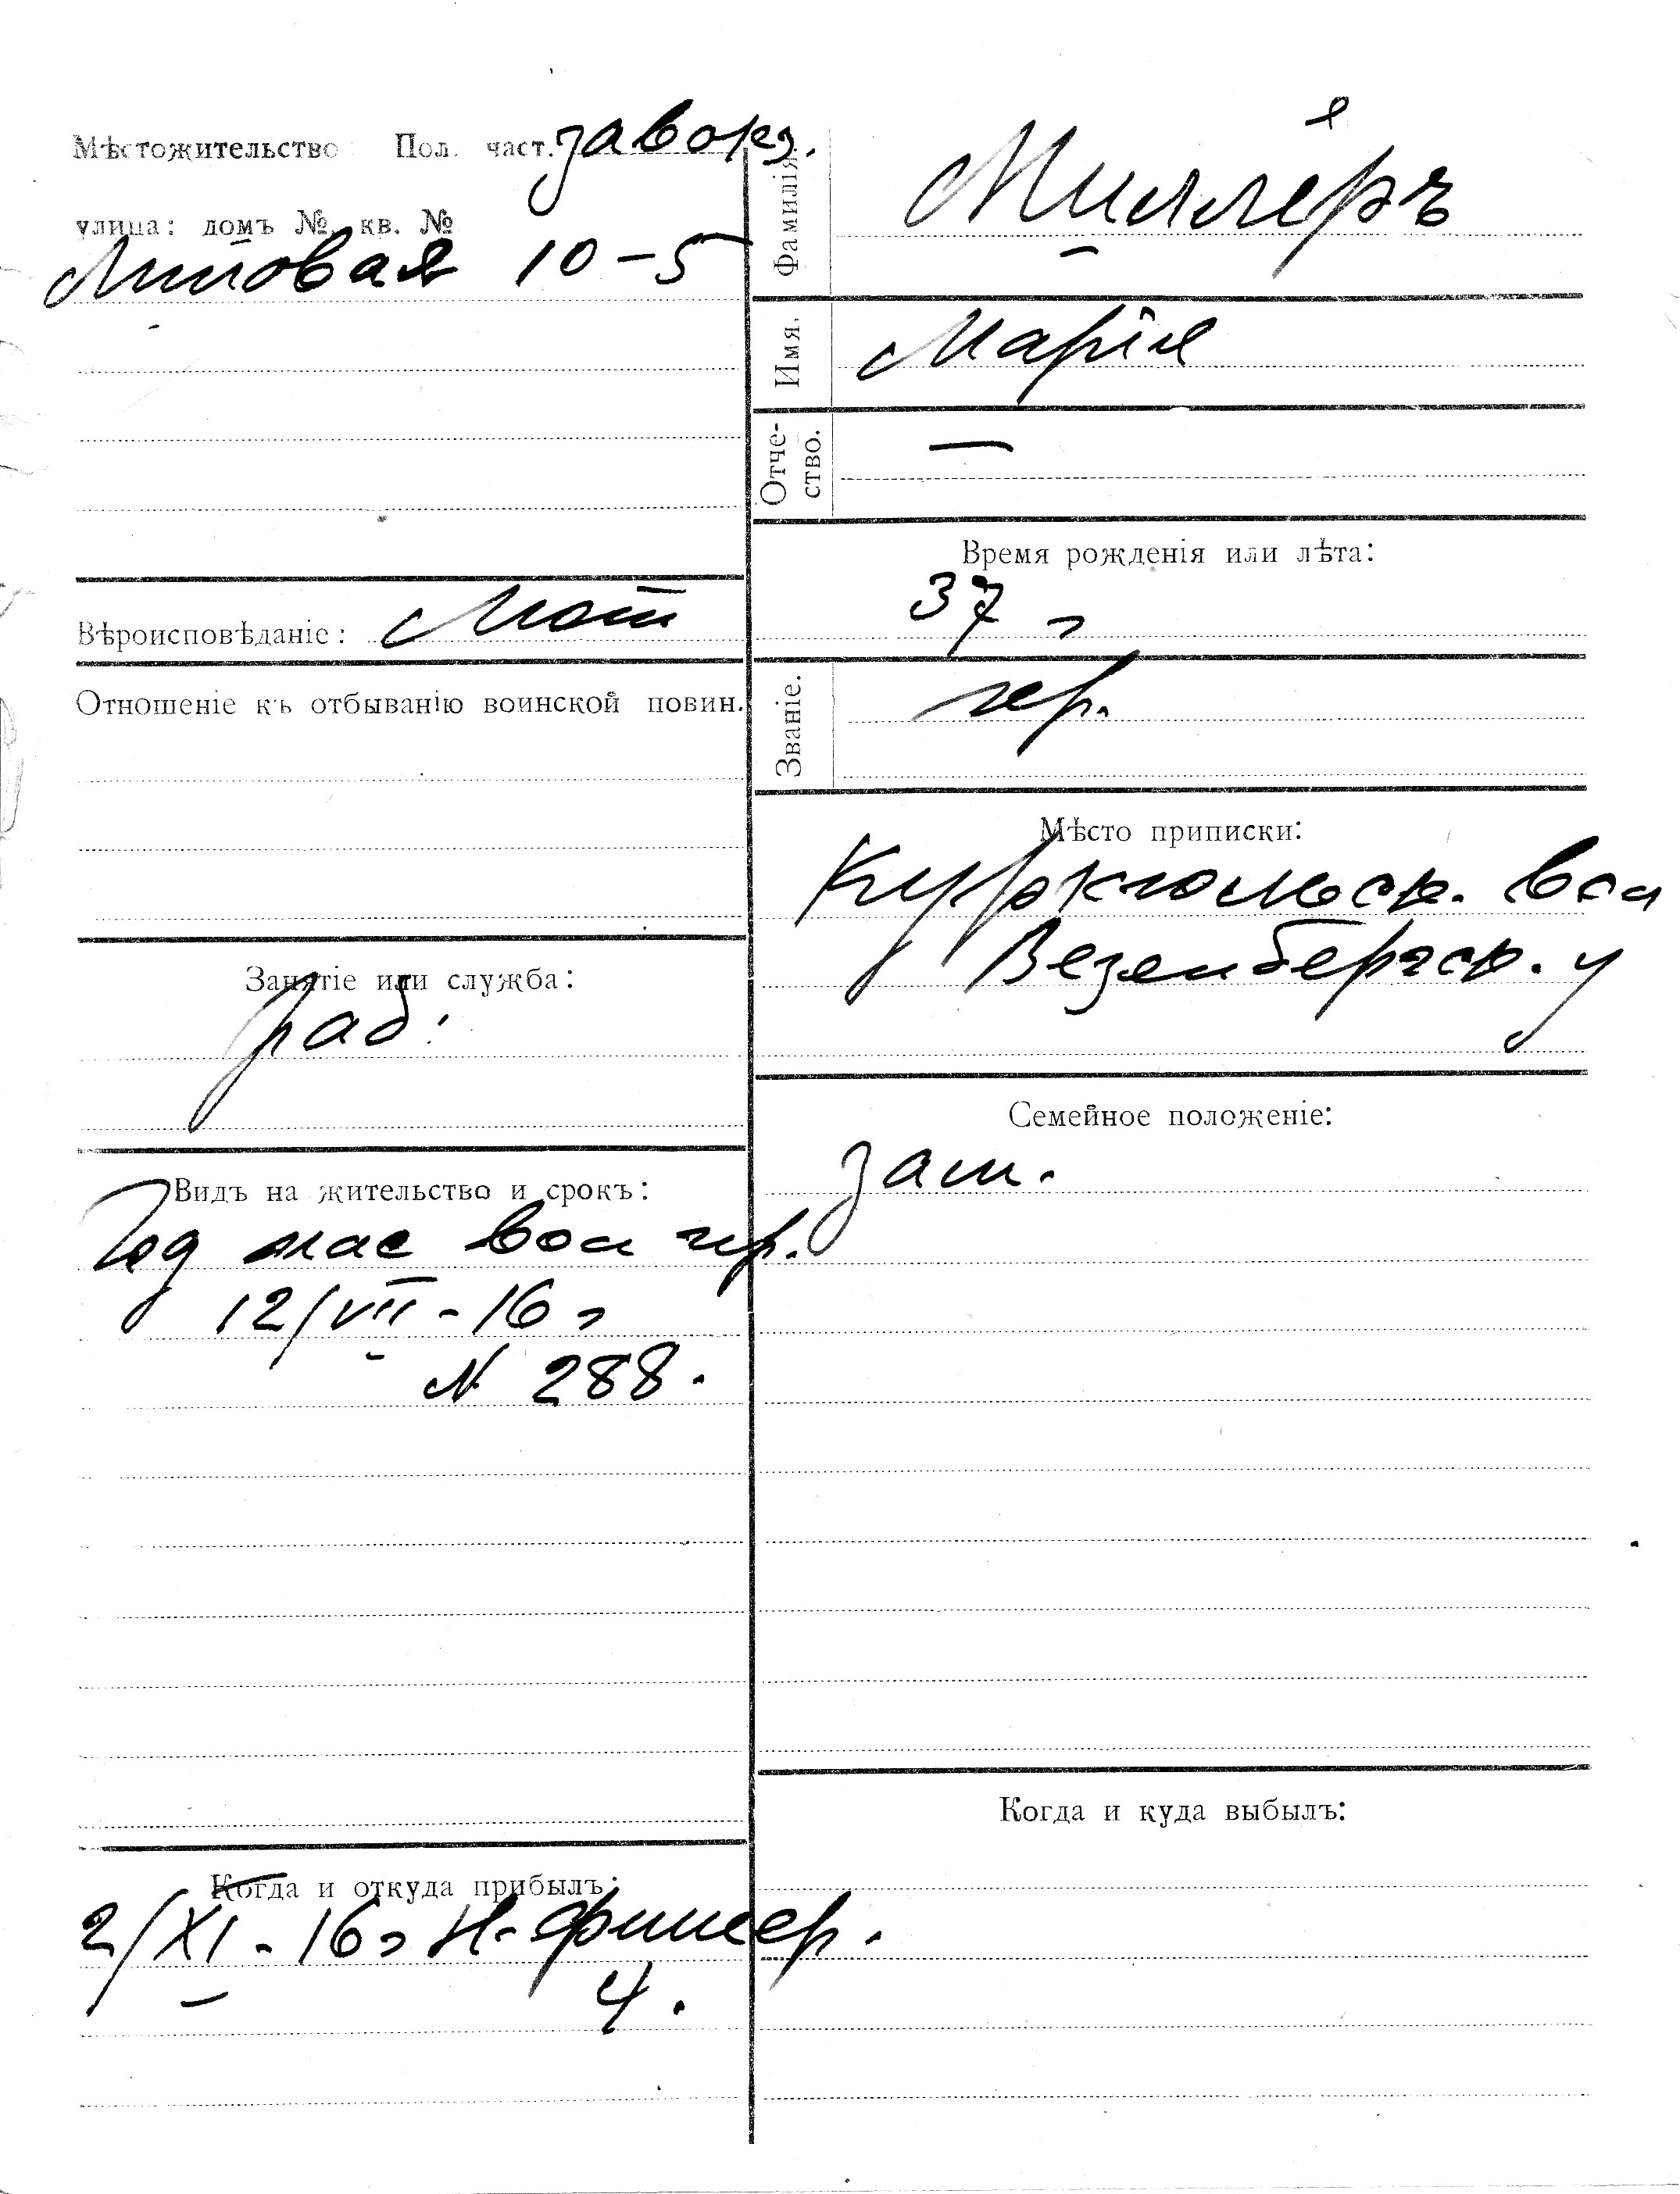 Мѣстожительство Пол. част. завокз.
улица: домъ №, кв. №
Липовая 10-5
Вѣроисповѣданіе: Лют
Отношеніе къ отбыванію воинской повин.
Занятіе или служба:
раб.
Видъ на жительство и срокъ:
Год пас вол пр.
12/VII - 16 г
N 288.
Когда и откуда прибылъ:
2/XI - 16 г Н-
4.
Фамилія.
Миллеръ
Имя.
Марія
Отче-
ство.
—
Время рожденія или лѣта:
37 г
Званіе.
кр.
Мѣсто приписки:
вол
Везенбергск. у
Семейное положеніе:
зам.
Когда и куда выбылъ: